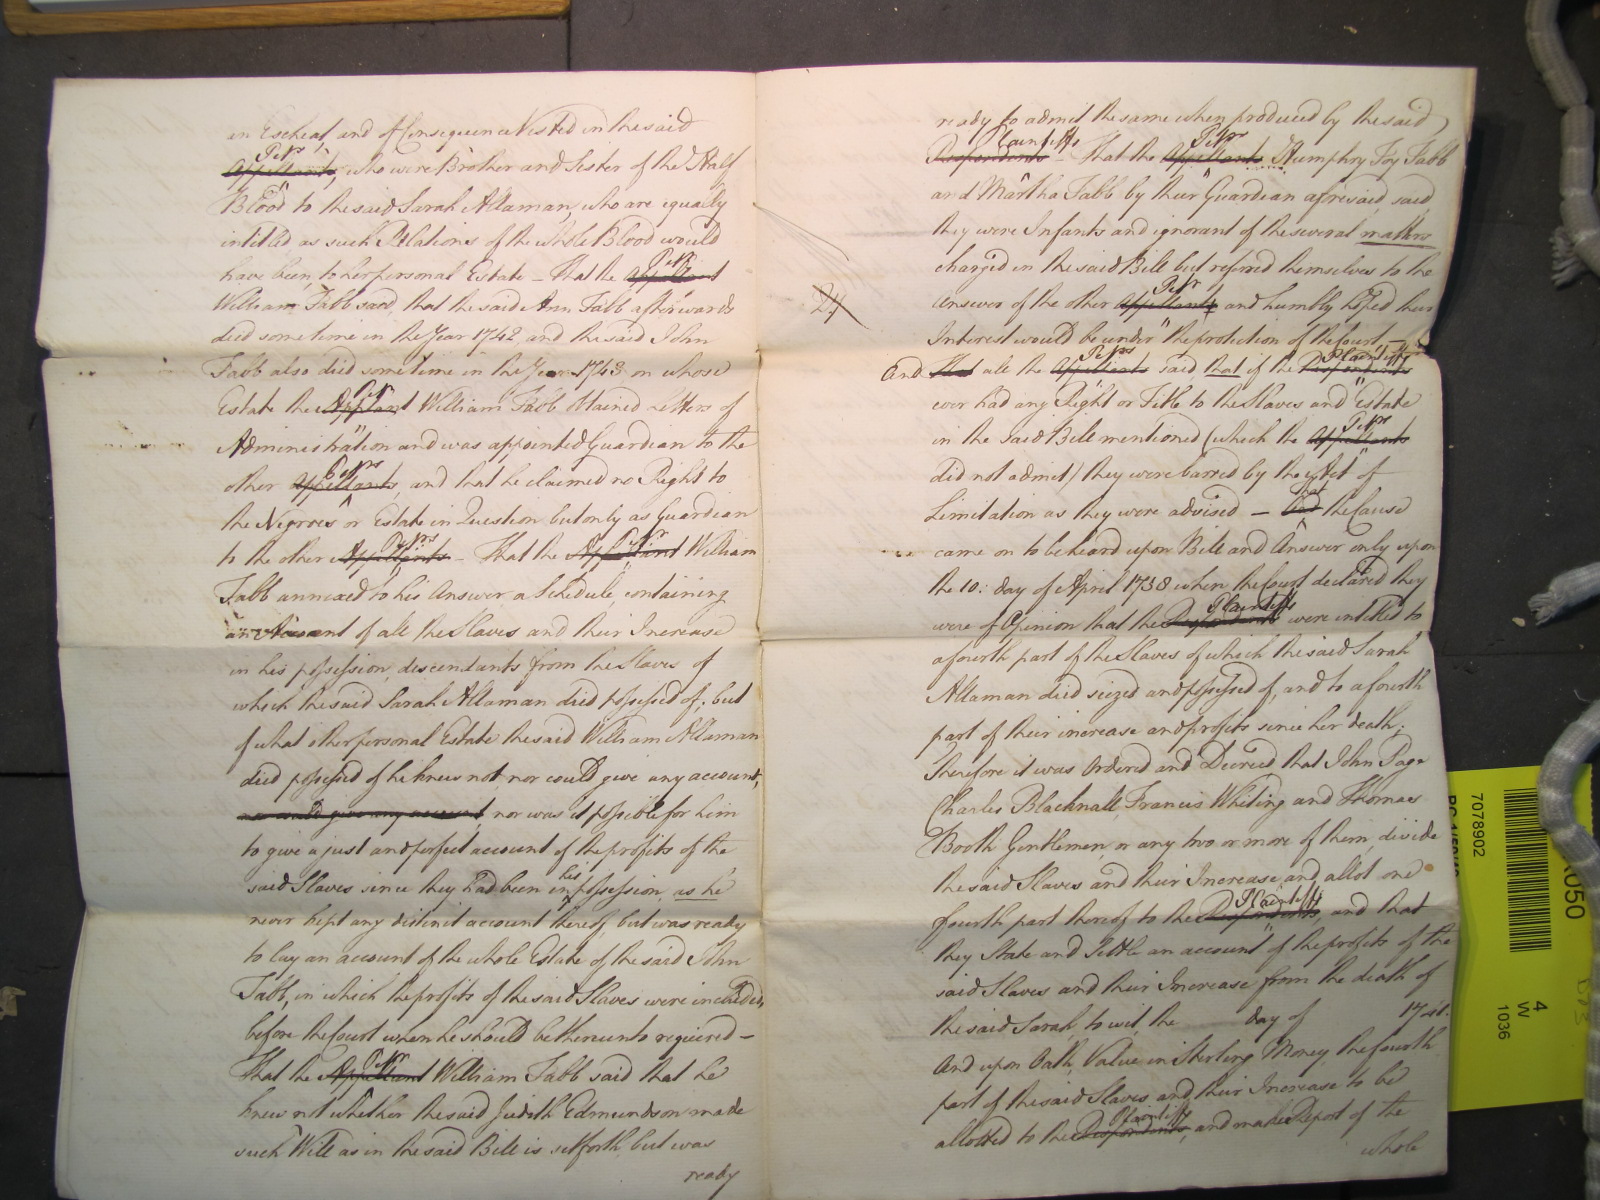 an Escheat, and of Consequence Vested in the said
Petrs
Appellants, who were Brother and Sister of the Half
Blood to the said Sarah Allaman, who are equally
intitled as such Relations of the whole Blood would
have been, to her personal Estate - That the Petr Appellant
William Tabb said, that the said Ann Tabb afterwards
died sometime in the Year 1742 and the said John
Tabb also died sometime in the Year 1748 on whose
Estate the Petr Appellant William Tabb obtained Letters of
Administration and was appointed Guardian to the
other Petrs Appellants, and that he claimed no Right to
the Negroes or Estate in Question but only as Guardian
to the other Petrs Appellants - That the Petr Appellant William
Tabb annexed to his Answer a Schedule containing
an Account of all the Slaves and their Increase
in his possession, descendants from the Slaves of
which the said Sarah Allaman died possessed of; but
of what other personal Estate the said William Allaman
died possessed of he knew not, nor could give any account,
nor could give any account, nor was it possible for him
to give a just and perfect account of the profits of the
said Slaves since they had been in his possession, as he
never kept any distinct account thereof, but was ready
to lay an account of the whole Estate of the said John
Tabb, in which the profits of the said Slaves were included,
before the Court when he should be thereunto required -
That the Petr Appellant William Tabb said that he
knew not whether the said Judith Edmundson made
such Will as in the said Bill is setforth, but was
ready
24
ready to admit the same when produced by the said
Plaintiffs Respondents - That the Petrs Appellants Humphry Toy Tabb
and Martha Tabb by their Guardian aforesaid, said
they were Infants and ignorant of the several matters
charged in the said Bill but referred themselves to the
Answer of the other Petr Appellants and humbly hoped their
Interest would be under the protection of the Court -
And That all the Petrs Appellants said that if the Plaintiffs Respondents
ever had any Right or Title to the Slaves and Estate
in the said Bill mentioned (which the Petrs Appellants
did not admit) they were barred by the Act of
Limitation as they were advised - the Cause
came on to be heard upon Bill and Answer only upon
the 10: day of April 1758 when the Court declared they
were of Opinion that the Plaintiffs Respondents were intitled to
a fourth part of the Slaves of which the said Sarah
Allaman died seized and possessed of, and to a fourth
part of their increase and profits since her death;
Therefore it was Ordered and Decreed that John Page
Charles Blacknall, Francis Whiting and Thomas
Booth Gentlemen, or any two or more of them, divide
the said Slaves and their Increase, and allot one
fourth part thereof to the Plaintiffs Respondents, and that
they State and Settle an account of the profits of the
said Slaves and their Increase from the death of
the said Sarah, to wit, the day of
And upon Oath, Value in Sterling Money, the fourth
part of the said Slaves and their Increase to be
allotted to the Plaintiffs Respondents, and make Report of the
whole
7078902
4
W
1036